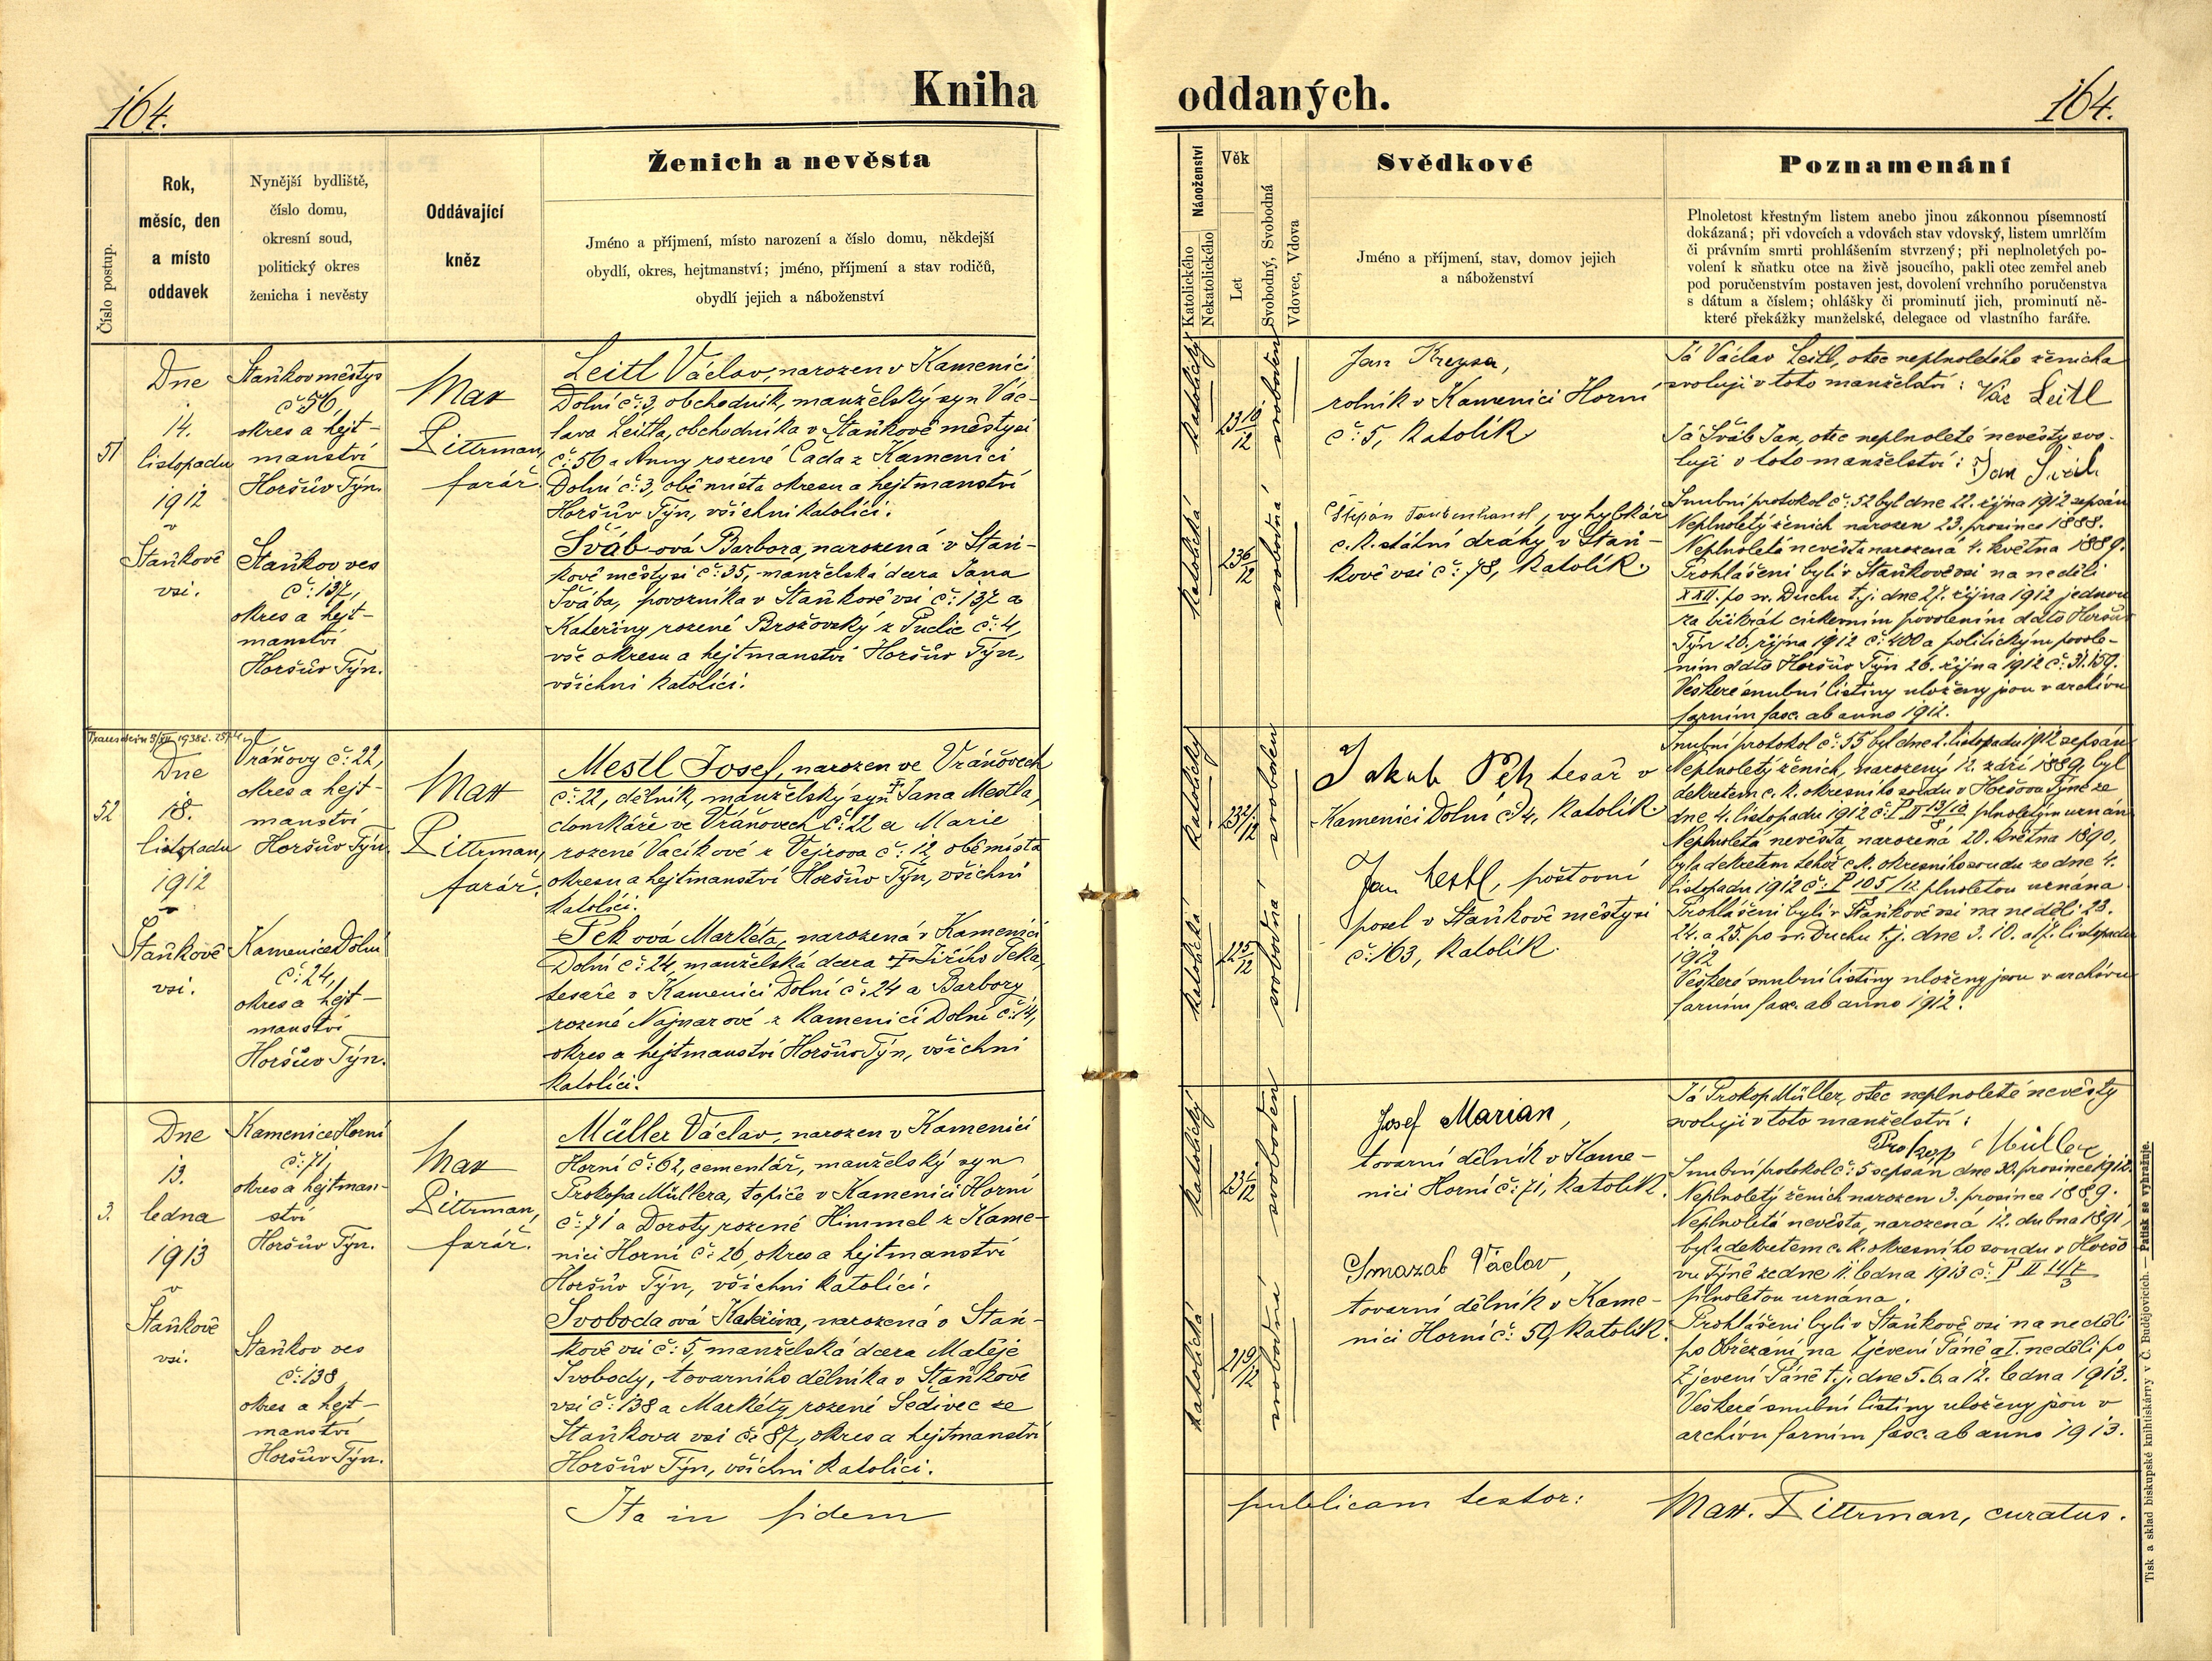 164.
Kniha
oddaných.
164.
Číslo postup.
Rok,
měsíc, den
a místo
oddavek
Nynější bydliště,
číslo domu,
okresní soud,
politický okres
ženicha i nevěsty
Oddávající
kněz
Ženich a nevěsta
Jméno a příjmení, místo narození a číslo domu, někdejší
obydlí, okres, hejtmanství; jméno, příjmení a stav rodičů,
obydlí jejich a náboženství
Náboženství
Katolického
Nekatolického
Věk
Let
Svobodný, Svobodná
Vdovec, Vdova
Svědkové
Jméno a příjmení, stav, domov jejich
a náboženství
Poznamenání
Plnoletost křestným listem anebo jinou zákonnou písemností
dokázaná; při vdovcích a vdovách stav vdovský, listem umrlčím
či právním smrti prohlášením stvrzený; při neplnoletých po-
volení k sňatku otce na živě jsoucího, pakli otec zemřel aneb
pod poručenstvím postaven jest, dovolení vrchního poručenstva
s dátum a číslem; ohlášky či prominutí jich, prominutí ně-
které překážky manželské, delegace od vlastního faráře.
51
Dne
14.
listopadu
1912
v
Staňkově
vsi.
Staňkov městys
č: 56,
okres a hejt-
manství
Horšův Týn.
Staňkov ves
č: 137,
okres a hejt-
manství
Horšův Týn.
Mat
Pittrman,
farář.
Leitl Václav, narozen v Kamenici
Dolní č: 3, obchodník, manželský syn Vác-
lava Leitla, obchodníka v Staňkově městysi
č: 56 a Anny rozené Čada z Kamenici
Dolní č: 3, obě místa okresu a hejtmanství
Horšův Týn, všichni katolíci.
Šváb-ová Barbora, narozená v Staň-
kově městysi č: 35, manželská dcera Jana
Švába, povozníka v Staňkově vsi č: 137 a
Kateřiny rozené Brožovský z Puclic č: 4,
vše okresu a hejtmanství Horšův Týn,
všichni katolíci.
katolický
23 10/12
svoboden
katolická
23 6/12
svobodná
Jan Kreysa,
rolník v Kamenici Horní
č: 5, katolík
Štěpán Taubenhansl, vyhybkář
c. k. státní dráhy v Staň-
kově vsi č: 78, katolík.
Já Václav Leitl, otec neplnoletého ženicha
svoluji v toto manželství: Vác Leitl
Já Šváb Jan, otec neplnoleté nevěsty svo-
luji v toto manželství: Jan Šváb
Snubní protokol č: 52 byl dne 22. října 1912 sepsán
Neplnoletý ženich narozen 23. prosince 1888.
Neplnoletá nevěsta narozená 4. května 1889.
Prohlášeni byli v Staňkově vsi na neděli
XXII. po sv. Duchu t. j. dne 27. října 1912 jednou
za třikrát církevním povolením ddto Horšův
Týn 26. října 1912 č: 400 a politickým povole-
ním ddto Horšův Týn 26. října 1912 č: 31.159.
Veškeré snubní listiny uloženy jsou v archivu
farním fasc. ab anno 1912.
52
Dne
18.
listopadu
1912
v
Staňkově
vsi.
Vráňovy č: 22,
okres a hejt-
manství
Horšův Týn.
Kamenice Dolní
č: 24,
okres a hejt-
manství
Horšův Týn.
Mat
Pittrman,
farář.
Mestl Josef, narozen ve Vráňovech
č: 22, dělník, manželský syn † Jana Mestla,
domkáře ve Vráňovech č: 22 a Marie
rozené Vacíkové z Vejrova č: 12, obě místa
okresu a hejtmanství Horšův Týn, všichni
katolíci.
Pek ová Markéta, narozená v Kamenici
Dolní č: 24, manželská dcera † Jiřího Peka,
tesaře v Kamenici Dolní č: 24 a Barbory
rozené Najmarové z Kamenici Dolní č: 14,
okres a hejtmanství Horšův Týn, všichni
katolíci.
katolický
23 2/12
svoboden
katolická
22 5/12
svobodná
Jakub Pek tesař v
Kamenici Dolní č: 4, katolík
Jan Mestl, poštovní
posel v Staňkově městysi
č: 163, katolík.
Snubní protokol č: 55 byl dne 2. listopadu 1912 sepsán
Neplnoletý ženich, narozený 12. září 1889, byl
dekretem c. k. okresního soudu v Horšově Týně ze
dne 4. listopadu 1912 č: P II 13/12 8 plnoletým uznán
Neplnoletá nevěsta, narozená 20. května 1890,
byla dekretem tehož c. k. okresního soudu ze dne 4.
listopadu 1912 č: P 105/12 plnoletou uznána
Prohlášeni byli v Staňkově vsi na neděli 23.
24. a 25. po sv. Duchu t. j. dne 3. 10. a 17. listopadu
1912
Veškeré snubní listiny uloženy jsou v archivu
farním fasc. ab anno 1912.
3.
Dne
13.
ledna
1913
v
Staňkově
vsi.
Kamenice Horní
č: 71,
okres a hejtman-
ství
Horšův Týn.
Staňkov ves
č: 138,
okres a hejt-
manství
Horšův Týn.
Mat
Pittrman,
farář.
Müller Václav, narozen v Kamenici
Horní č: 62, cementář, manželský syn
Prokopa Müllera, topiče v Kamenici Horní
č: 71 a Doroty rozené Himmel z Kame-
nici Horní č: 26, okres a hejtmanství
Horšův Týn, všichni katolíci.
Svoboda ová Kateřina, narozená v Staň-
kově vsi č: 5, manželská dcera Matěje
Svobody, továrního dělníka v Staňkově
vsi č: 138 a Markéty rozené Šedivec ze
Staňkova vsi č: 87, okres a hejtmanství
Horšův Týn, všichni katolíci.
katolický
23 1/12
svoboden
katolická
21 9/12
svobodná
Josef Marian,
tovarní dělník v Kame-
nici Horní č: 71, katolík.
Smazal Václav,
tovarní dělník v Kame-
nici Horní č: 59, katolík.
Já Prokop Müller, otec neplnoleté nevěsty
svoluji v toto manželství:
Prokop Müller
Snubní protokol č: 5 sepsán dne 30. prosince 1912.
Neplnoletý ženich narozen 3. prosince 1889.
Neplnoletá nevěsta, narozená 12. dubna 1891,
byla dekretem c. k. okresního soudu v Horšo
vu Týně ze dne 11. ledna 1913 č: P II
plnoletou uznána.
Prohlášeni byli v Staňkově vsi na neděli
po Obřezání, na Zjevení Páně a I. neděli po
Zjevení Páně t. j. dne 5. 6. a 12. ledna 1913.
Veškeré snubní listiny uloženy jsou v
archivu farním fasc. ab anno 1913.
Ita in fidem
publicam testor:
Matt. Pittrman, curatus.
Tisk a sklad biskupské knihtiskárny v Č. Budějovicích. — Patisk se vyhražuje.